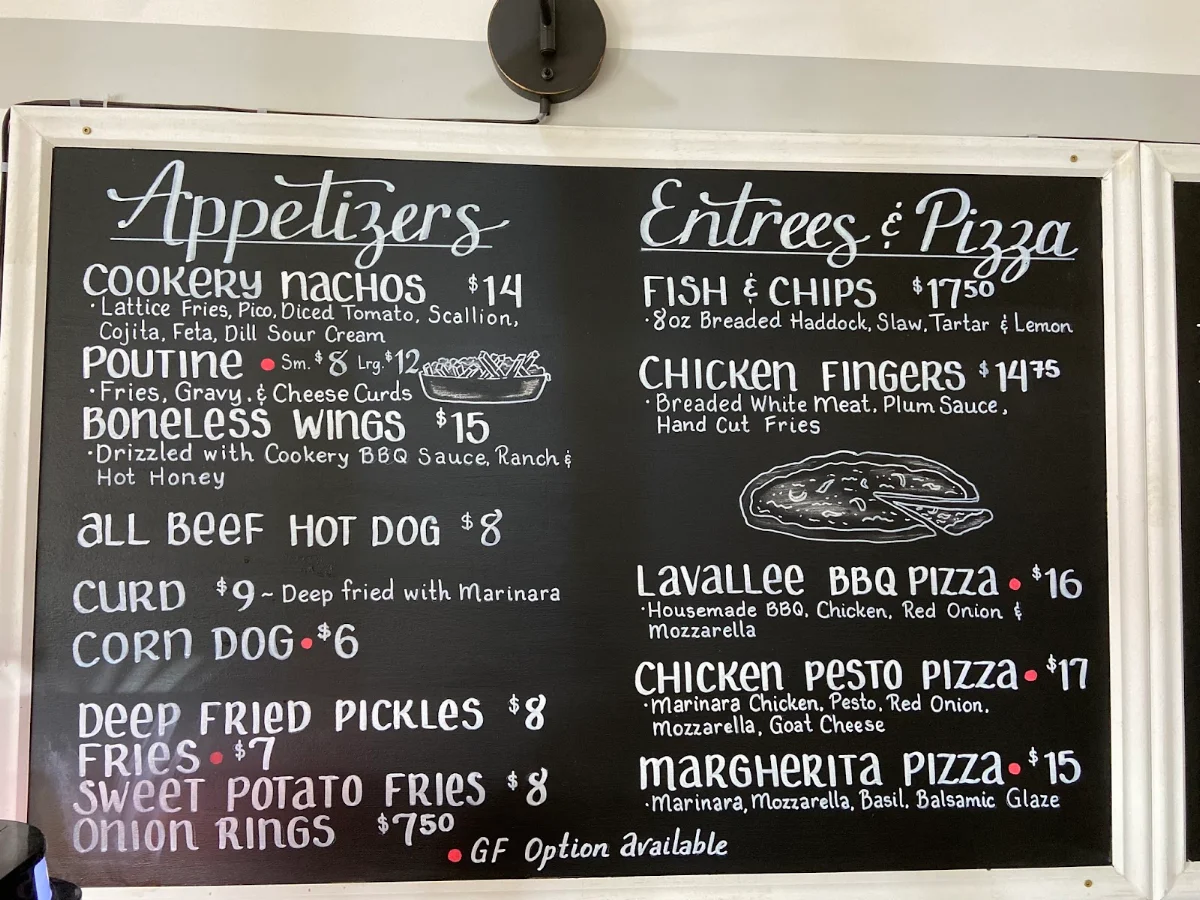 Appetizers
COOKERY NACHOS $14
· Lattice Fries, Pico, Diced Tomato, Scallion,
Cojita, Feta, Dill Sour Cream
POUTINE • Sm. $8 Lrg. $12
· Fries, Gravy, & Cheese Curds
BONELESS WINGS $15
· Drizzled with Cookery BBQ Sauce, Ranch &
Hot Honey
ALL BEEF HOT DOG $8
CURD $9 ~ Deep fried with Marinara
CORN DOG • $6
DEEP FRIED PICKLES $8
FRIES • $7
SWEET POTATO FRIES $8
ONION RINGS $750
Entrees & Pizza
FISH & CHIPS $1750
· 8oz Breaded Haddock, Slaw, Tartar & Lemon
CHICKEN FINGERS $1475
· Breaded White Meat, Plum Sauce,
Hand Cut Fries
LAVALLEE BBQ PIZZA • $16
· Housemade BBQ, Chicken, Red Onion &
Mozzarella
CHICKEN PESTO PIZZA • $17
· Marinara Chicken, Pesto, Red Onion,
Mozzarella, Goat Cheese
MARGHERITA PIZZA • $15
· Marinara, Mozzarella, Basil, Balsamic Glaze
• GF Option available